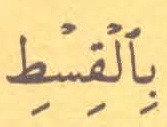 بِٱلْقِسْطِ